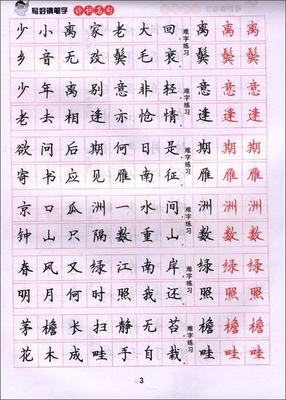 写好钢笔字 诗词名句
少小离家老大回 难字练习 离离离
乡音无改鬓毛衰 鬓鬓鬓
少年离别意非轻 难字练习 意意意
老去相逢亦怆情 逢逢逢
欲问后期何日是 难字练习 期期期
寄书应见雁南征 雁雁雁
京口瓜洲一水间 难字练习 洲洲洲
钟山只隔数重山 数数数
春风又绿江南岸 难字练习 绿绿绿
明月何时照我还 照照照
茅檐长扫静无苔 难字练习 檐檐檐
花木成畦手自栽 畦畦畦
3